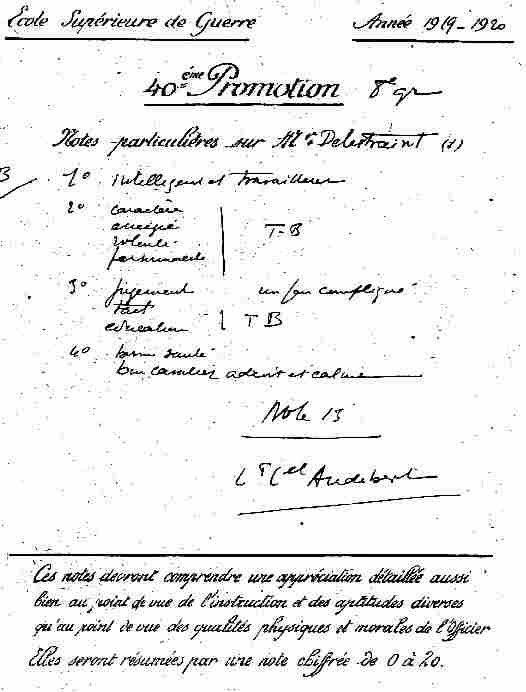 Ecole Supérieure de Guerre Année 1919-1920
40ème Promotion 8e gr
Notes particulières sur Mr Delestraint (1)
B
1° Intelligent et travailleur
2° caractère
énergie
volonté
personnalité
T-B
3° jugement un peu compliqué
tact
education
T B
4° bonne santé
bon cavalier adroit et calme
Note 13
Lt Cel Audebert
Ces notes devront comprendre une appréciation détaillée aussi
bien au point de vue de l'instruction et des aptitudes diverses
qu'au point de vue des qualités physiques et morales de l'Officier
Elles seront résumées par une note chiffrée de 0 à 20.